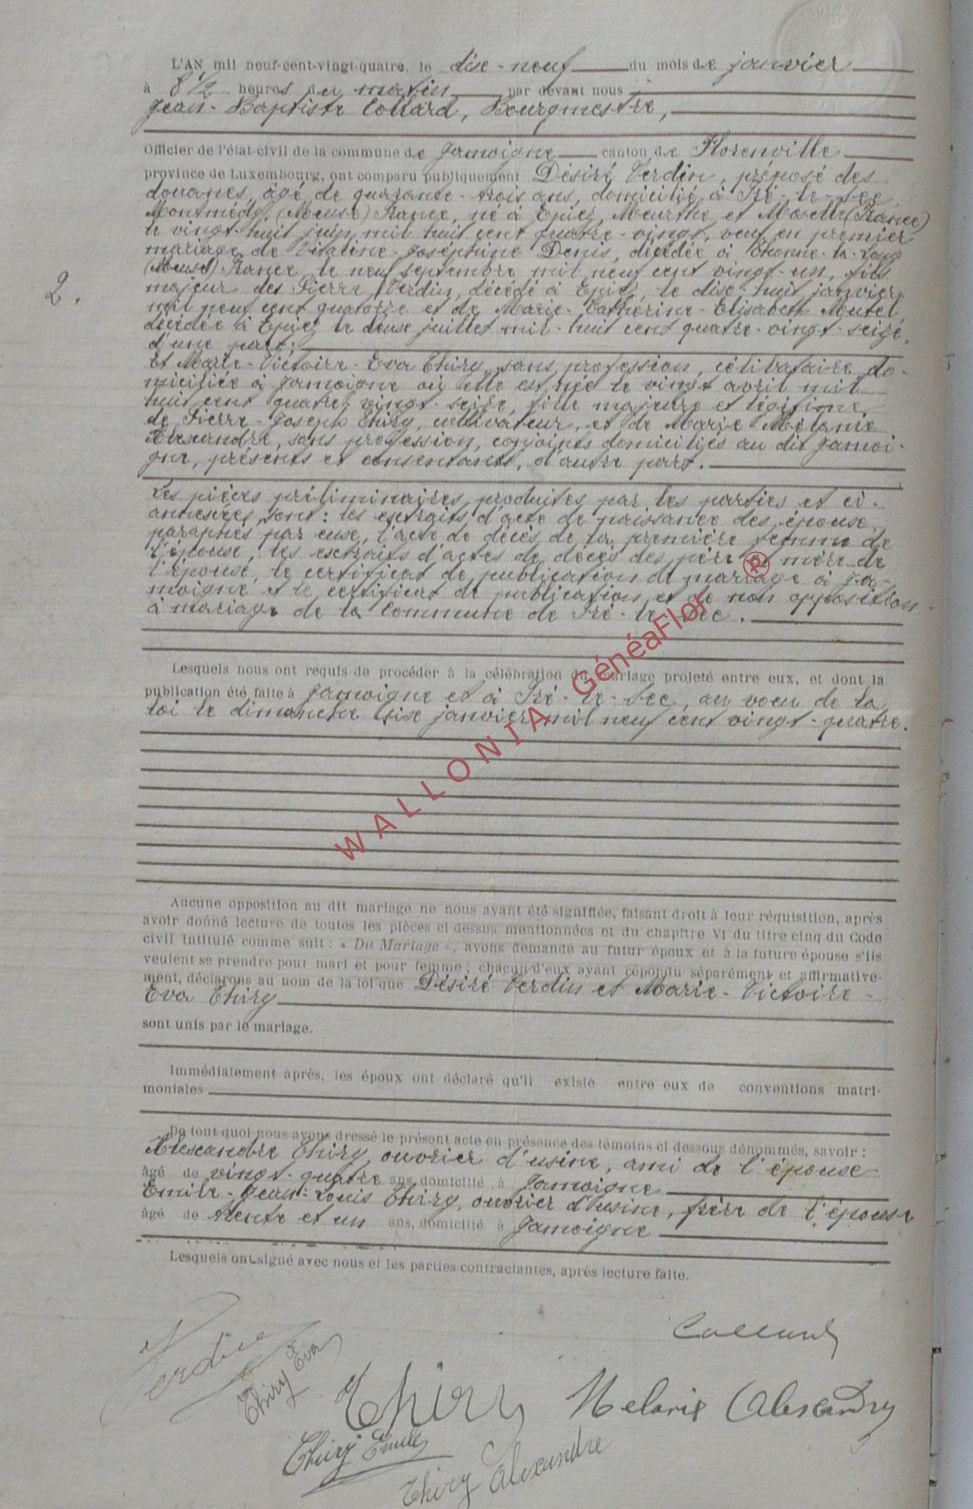 L'AN mil neuf-cent-vingt-quatre, le dix-neuf du mois de janvier
à 8 1/2 heures du matin par devant nous
Jean-Baptiste Collard, Bourgmestre,
Officier de l'état-civil de la commune de Jamoigne canton de Florenville
province de Luxembourg, ont comparu publiquement Désiré Verdin, préposé des
douanes, âgé de quarante-trois ans, domicilié à Iré-le-Sec
Montmédy, (Meuse) France, né à Epiez, Meurthe et Moselle (France)
le vingt-huit juin mil huit cent quatre-vingt, veuf en premier
mariage de Joséphine Denis, décédée à Thonne-le-Long
(Meuse) France, le neuf septembre mil neuf cent vingt-un, fils
majeur des Pierre Verdin, décédé à Epiez, le dix-huit janvier
mil neuf cent quatorze et de Marie-Catherine-Elisabeth
décédée à Epiez le douze juillet mil-huit cent quatre-vingt-seize,
d'une part;
2.
Et Marie-Victoire-Eva Thiry, sans profession, célibataire, do-
miciliée à Jamoigne où elle est née le vingt avril mil
huit cent quatre vingt-seize, fille majeure et légitime
de Pierre-Joseph Thiry, cultivateur, et de Marie Mélanie
Alexandre, sans profession, conjoints domiciliés au dit Jamoi-
gne, présents et consentants, d'autre part.
Les pièces préliminaires produites par les parties et ci-
annexées sont: les extraits d'acte de naissance des épouse
paraphés par eux, l'acte de décès de la première femme de
l'épouse, les extraits d'actes de décès des père et mère de
l'épouse, le certificat de publication de mariage à Ja-
moigne et le certificat de publication et de non opposition
à mariage de la Commune de Iré-le-Sec.
Lesquels nous ont requis de procéder à la célébration du mariage projeté entre eux, et dont la
publication été faite à Jamoigne et à Iré-le-Sec, au voeu de la
loi le dimanche six janvier mil neuf cent vingt-quatre.
WALLONIA GénéaFlor ®
Aucune opposition au dit mariage ne nous ayant été signifiée, faisant droit à leur réquisition, après
avoir donné lecture de toutes les pièces ci-dessus mentionnées et du chapitre VI du titre cinq du Code
civil intitulé comme suit : « Du Mariage », avons demandé au futur époux et à la future épouse s'ils
veulent se prendre pour mari et pour femme ; chacun d'eux ayant répondu séparément et affirmative-
ment, déclarons au nom de la loi que Désiré Verdin et Marie-Victoire-
Eva Thiry
sont unis par le mariage.
Immédiatement après, les époux ont déclaré qu'il existe entre eux de conventions matri-
moniales
De tout quoi nous avons dressé le présent acte en présence des témoins ci dessous dénommés, savoir :
Alexandre Thiry, ouvrier d'usine, ami de l'épouse
âgé de vingt-quatre ans, domicilié à Jamoigne
Emile-Jean-Louis Thiry, ouvrier d'usine, frère de l'épouse
âgé de trente et un ans, domicilié à Jamoigne
Lesquels ont signé avec nous et les parties contractantes, après lecture faite.
Collard
Verdin
Thiry Eva
Thiry
Melanie Alexandre
Thiry Emile
Thiry Alexandre